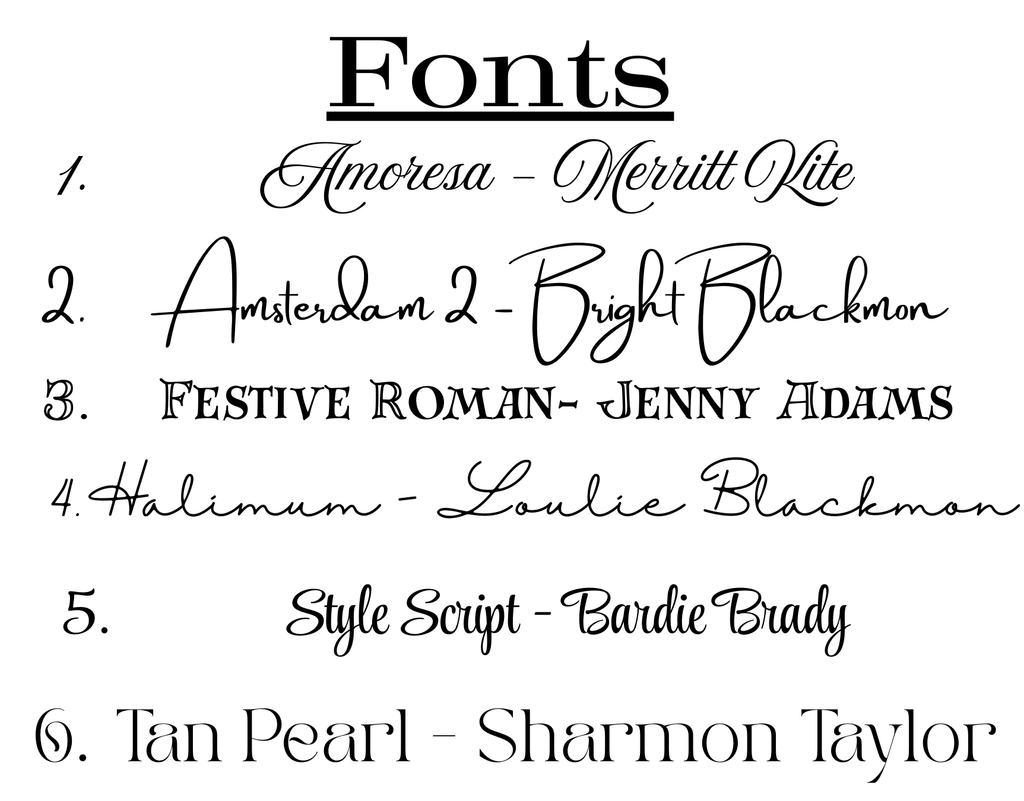 Fonts
1. Amoresa - Merritt Kite
2. Amsterdam 2 - Bright Blackmon
3. Festive Roman- Jenny Adams
4. Halimum - Loulie Blackmon
5. Style Script - Bardie Brady
6. Tan Pearl - Sharmon Taylor